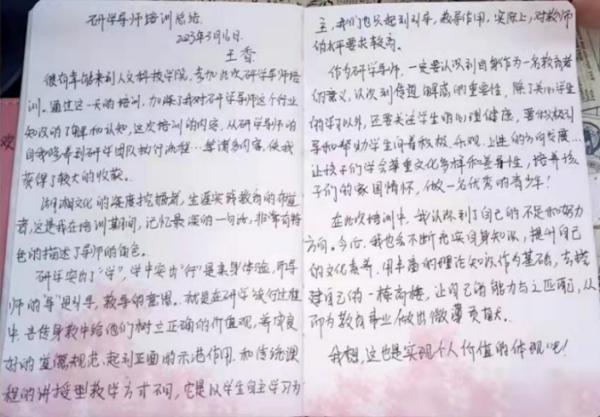 研学导师培训总结
2023年3月16日
王香
很有幸能来到人文科技学院,参加此次研学导师培
训。通过这一天的培训,加深了我对研学导师这个行业
知识的了解和认知,这次培训的内容,从研学导师的
自我修养到研学团队执行流程…等诸多内容,使我
获得了较大的收获。
湖湘文化的深度挖掘者,生涯实践教育的布道
者,这是我在培训期间,记忆最深的一句话,非常有特
色的描述了导师的角色。
研学突出了“学”,学中突出“行”是亲身体验,而导
师的“导”是引导,教导的意思。就是在研学旅行过程
中,言传身教中给他们树立正确的价值观,养成良
好的道德规范,起到正面的示范作用,和传统课
程的讲授型教学方式不同,它是以学生自主学习为
主,我们也只起到引导,教导作用,实际上,对教师
的水平要求较高。
作为研学导师,一定要认识到自身作为一名教育者
的意义,认识到传道解惑的重要性,除了关心学生
的学习以外,还要关注学生的心理健康,要积极引
导和帮助学生向着积极、乐观、上进的方向发展…
让孩子们学会尊重文化多样和差异性,培养孩
子们的家国情怀,做一名优秀的青少年!
在此次培训中,我认识到了自己的不足和努力
方向。今后,我也会不断充实自身知识,提升自己
的文化素养,用丰富的理论知识作为基础,去搭
建自己的一栋高楼,让自己的能力与之匹配,从
而为教育事业做出微薄贡献。
我想,这也是实现个人价值的体现吧!